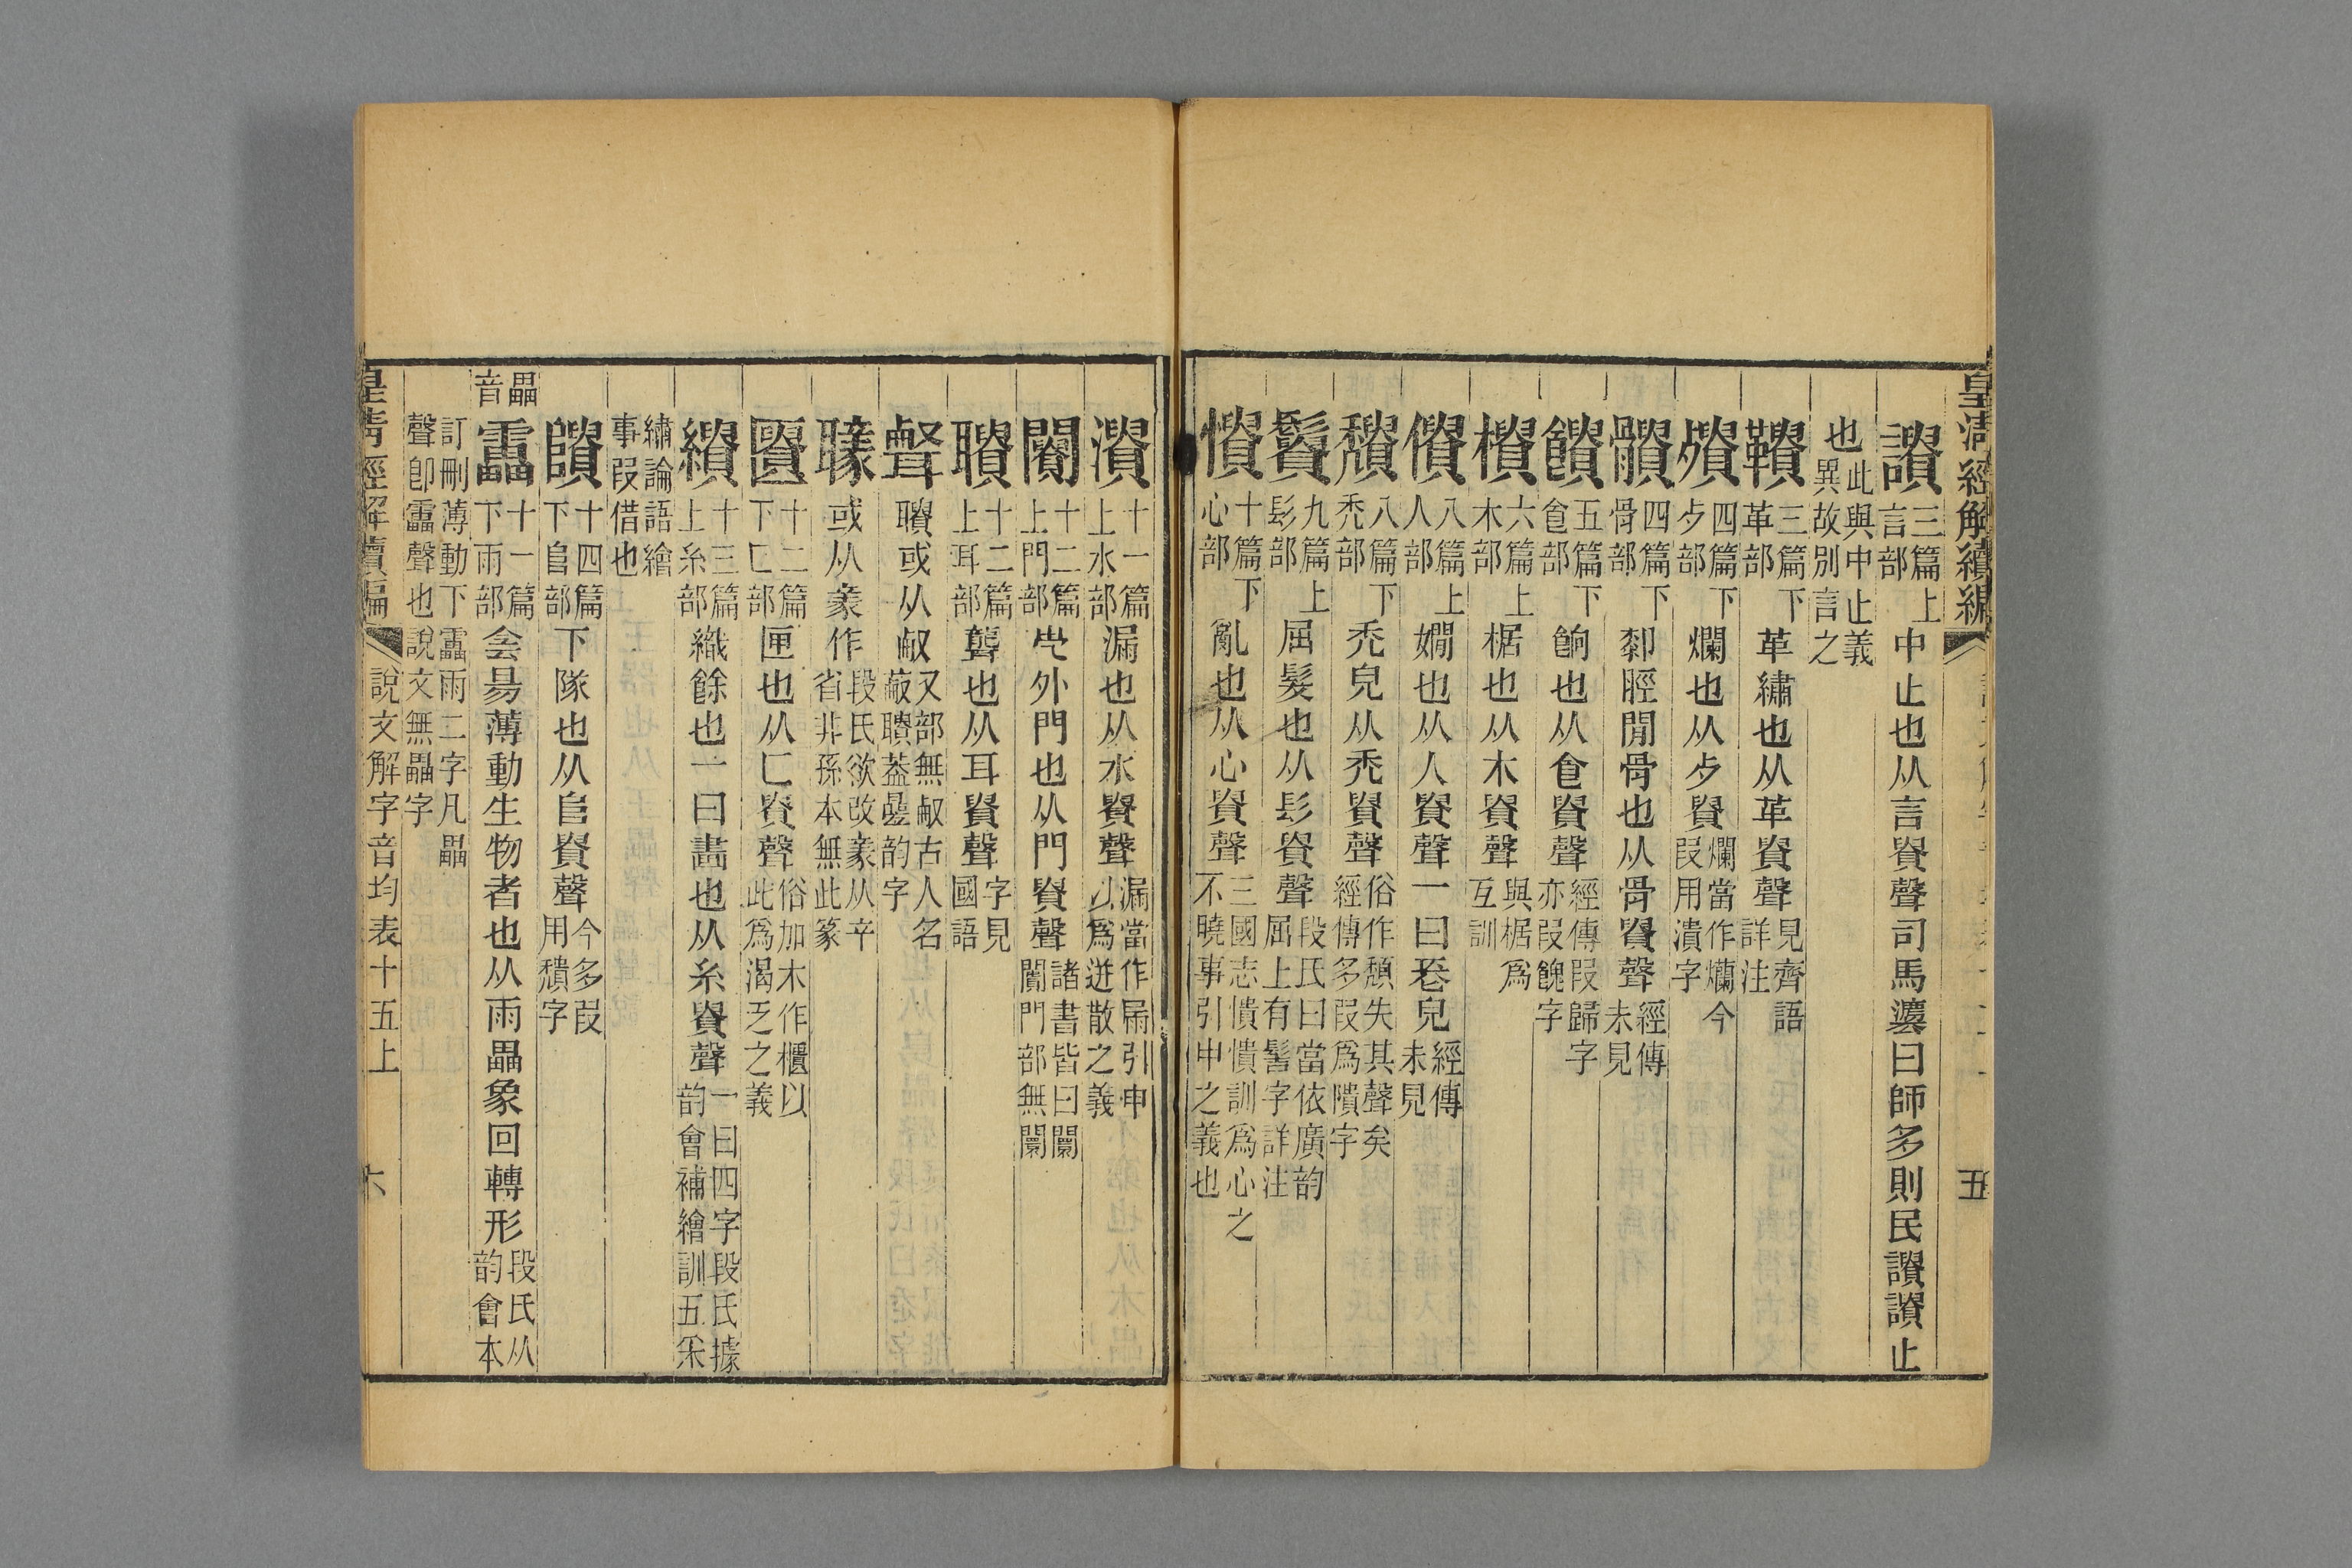 皇清經解續編
五
讃三篇上言部中止也从言貴聲司馬灋曰師多則民讀讀止
也此與中止義異故別言之
鞼三篇下革部革繡也从革貴聲見齊語詳注
殨四篇下歺部爛也从歺貴爛當作爤今叚用潰字
髖四篇下骨部厀脛閒骨也从骨貴聲經傳未見
饋五篇下食部餉也从食貴聲經傳叚歸字亦叚餽字
樻六篇上木部椐也从木貴聲與椐爲互訓
僓八篇上人部嫺也从人貴聲一曰長皃經傳未見
穨八篇下禿部禿皃从禿貴聲俗作頹失其聲矣經傳多叚爲隤字
鬢九篇上髟部屈髮也从髟貴聲段氏曰當依廣韵屈上有髻字詳注
憒十篇下心部亂也从心貴聲三國志憒憒訓爲心之不曉事引申之義也
潰十一篇上水部漏也从水貴聲漏當作屚引申以爲逬散之義
闠十二篇上門部市外門也从門貴聲諸書皆曰闤闠門部無闤
聵十二篇上耳部聾也从耳貴聲字見國語
聲聵或从㕟又部無㕟古人名㕟聵葢曡韵字
聭或从䝐作段氏欲改䝐从䇂省非孫本無此篆
匱十二篇下匚部匣也从匚貴聲俗加木作櫃以此爲渴乏之義
繢十三篇上糸部織餘也一曰畵也从糸貴聲一曰四字段氏據韵會補繪訓五采
繡論語繪事叚借也
隤十四篇下𨸏部下隊也从𨸏貴聲今多叚用穨字
畾音靁十一篇下雨部侌昜薄動生物者也从雨畾象回轉形段氏从韵會本
訂刪薄動下靁雨二字凡畾聲卽靁聲也說文無畾字
皇清經解續編
說文解字音均表十五上
六